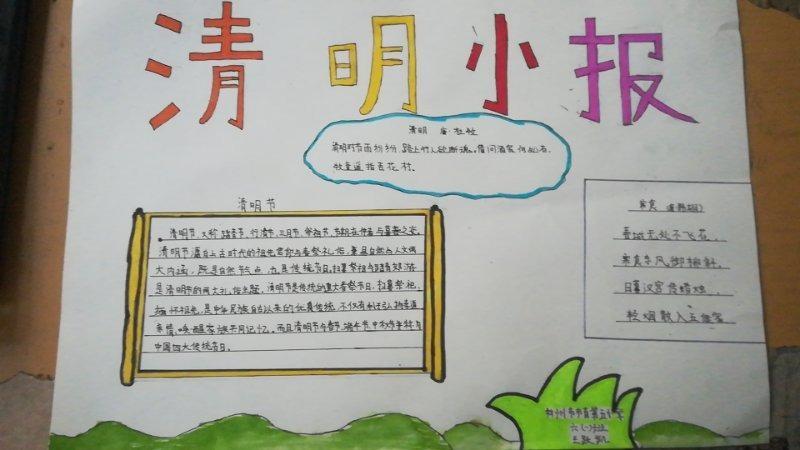 清明小报
清明 唐·杜牧
清明时节雨纷纷,路上行人欲断魂。借问酒家何处有,
牧童遥指杏花村。
清明节
清明节,又称踏青节、行清节、三月节、祭祖节,节期在仲春与暮春之交。
清明节源自上古时代的祖先信仰与春祭礼俗,兼具自然与人文两
大内涵,既是自然节气点,也是传统节日,扫墓祭祖与踏青郊游
是清明节的两大礼俗主题,清明节是传统的重大春祭节日,扫墓祭祀、
缅怀祖先,是中华民族自古以来的优良传统,不仅有利于弘扬孝道
亲情、唤醒家族共同记忆,而且清明节与春节、端午节、中秋节并称为
中国四大传统节日。
寒食 唐 韩翃
春城无处不飞花,
寒食东风御柳斜。
日暮汉宫传蜡烛,
轻烟散入五侯家
州市第五小学
六(一)班